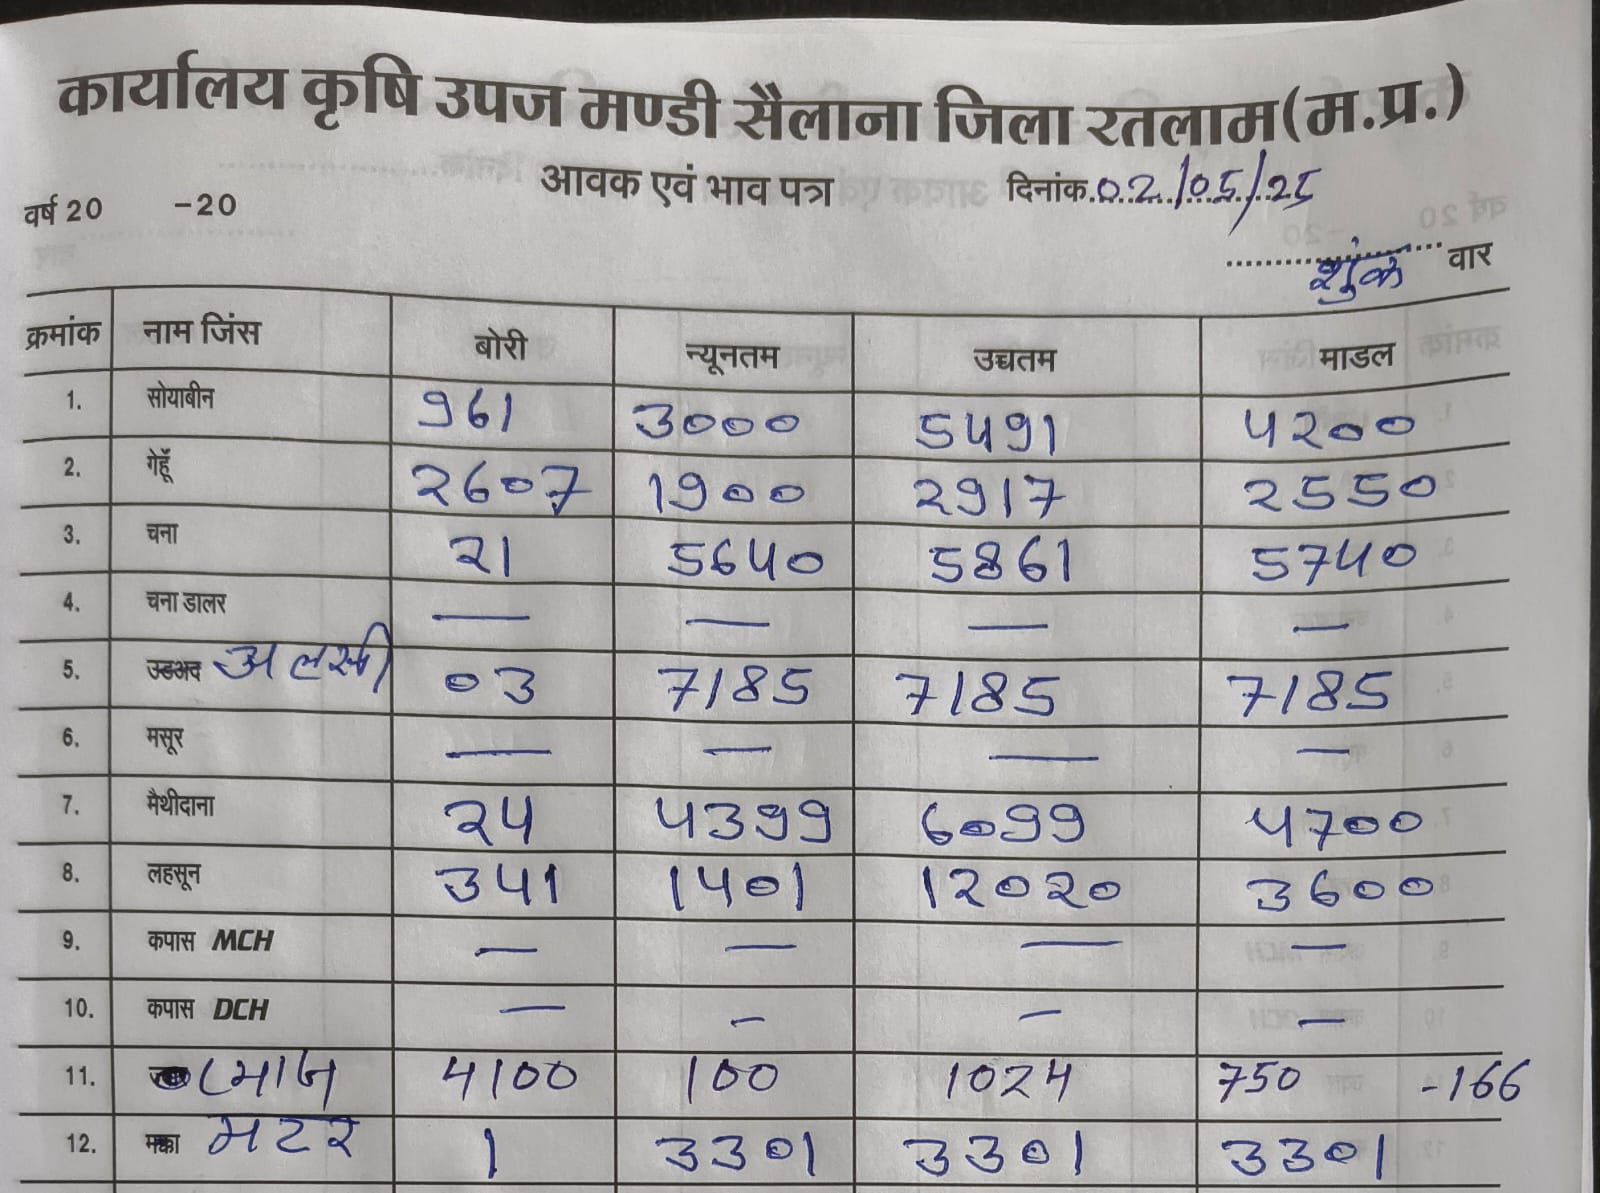 कार्यालय कृषि उपज मण्डी सैलाना जिला रतलाम(म.प्र.)
आवक एवं भाव पत्रा
दिनांक.02/05/25
वर्ष 20 -20
शुक्र वार
क्रमांक नाम जिंस बोरी न्यूनतम उच्चतम माडल
1. सोयाबीन 961 3000 5491 4200
2. गेहूँ 2607 1900 2917 2550
3. चना 21 5640 5861 5740
4. चना डालर — — — —
5. अलसी 03 7185 7185 7185
6. मसूर — — — —
7. मैथीदाना 24 4399 6099 4700
8. लहसून 341 1401 12020 3600
9. कपास MCH — — — —
10. कपास DCH — — — —
11. 4100 100 1024 750 -166
12. मक्का मटर 1 3301 3301 3301